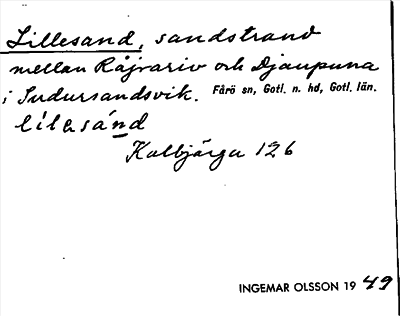 Lillesand, sandstrand
mellan Råjvariv och Djaupuna
i Sudursandsvik. Fårö sn, Gotl. n. hd, Gotl. län.
lílesánd
Kalbjärga 126
INGEMAR OLSSON 19 49